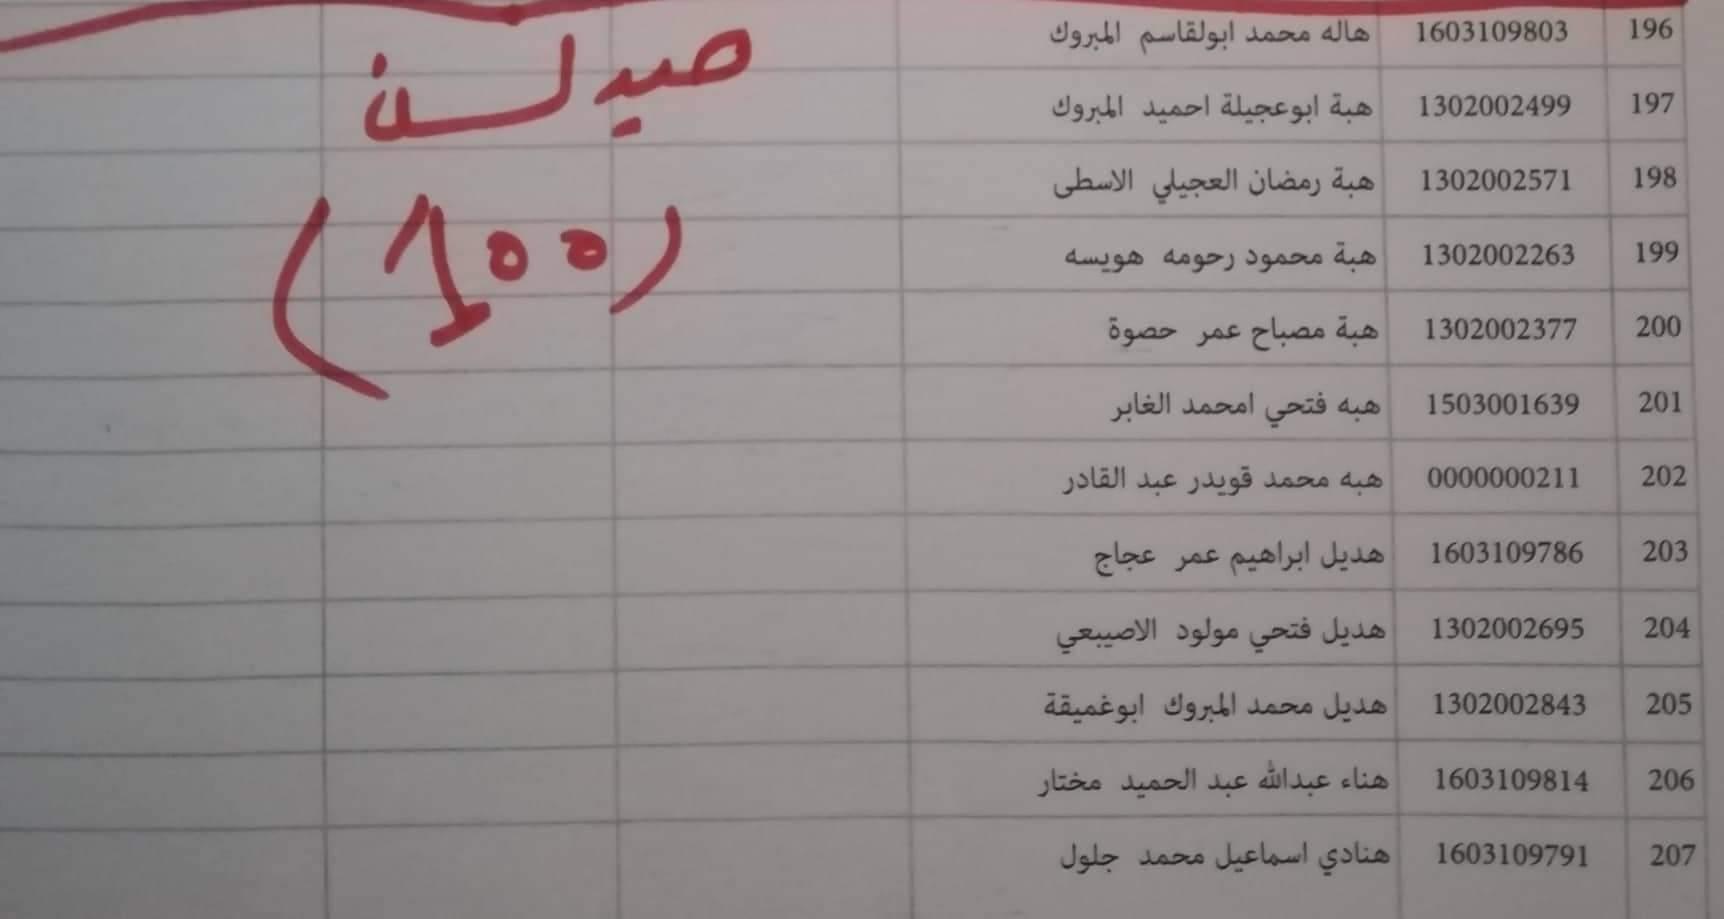 196 1603109803 هاله محمد ابولقاسم المبروك
197 1302002499 هبة ابوعجيلة احميد المبروك
198 1302002571 هبة رمضان العجيلي الاسطى
199 1302002263 هبة محمود رحومه هويسه
200 1302002377 هبة مصباح عمر حصوة
201 1503001639 هبه فتحي امحمد الغابر
202 0000000211 هبه محمد قويدر عبد القادر
203 1603109786 هديل ابراهيم عمر عجاج
204 1302002695 هديل فتحي مولود الاصيبعي
205 1302002843 هديل محمد المبروك ابوغميقة
206 1603109814 هناء عبدالله عبد الحميد مختار
207 1603109791 هنادي اسماعيل محمد جلول
(100)